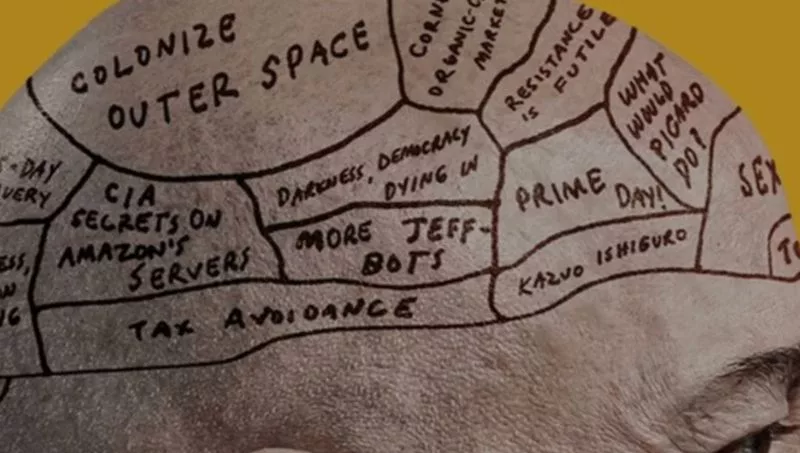 COLONIZE
OUTER SPACE
ORGANIC-
MARKE
RESISTANCE
IS FUTILE
WHAT
WOULD
PICARD
DO?
-DAY
VERY
CIA
SECRETS ON
AMAZON'S
SERVERS
DARKNESS, DEMOCRACY
DYING IN
MORE JEFF-
BOTS
PRIME
DAY!
KAZUO ISHIGURO
SEX
TAX AVOIDANCE